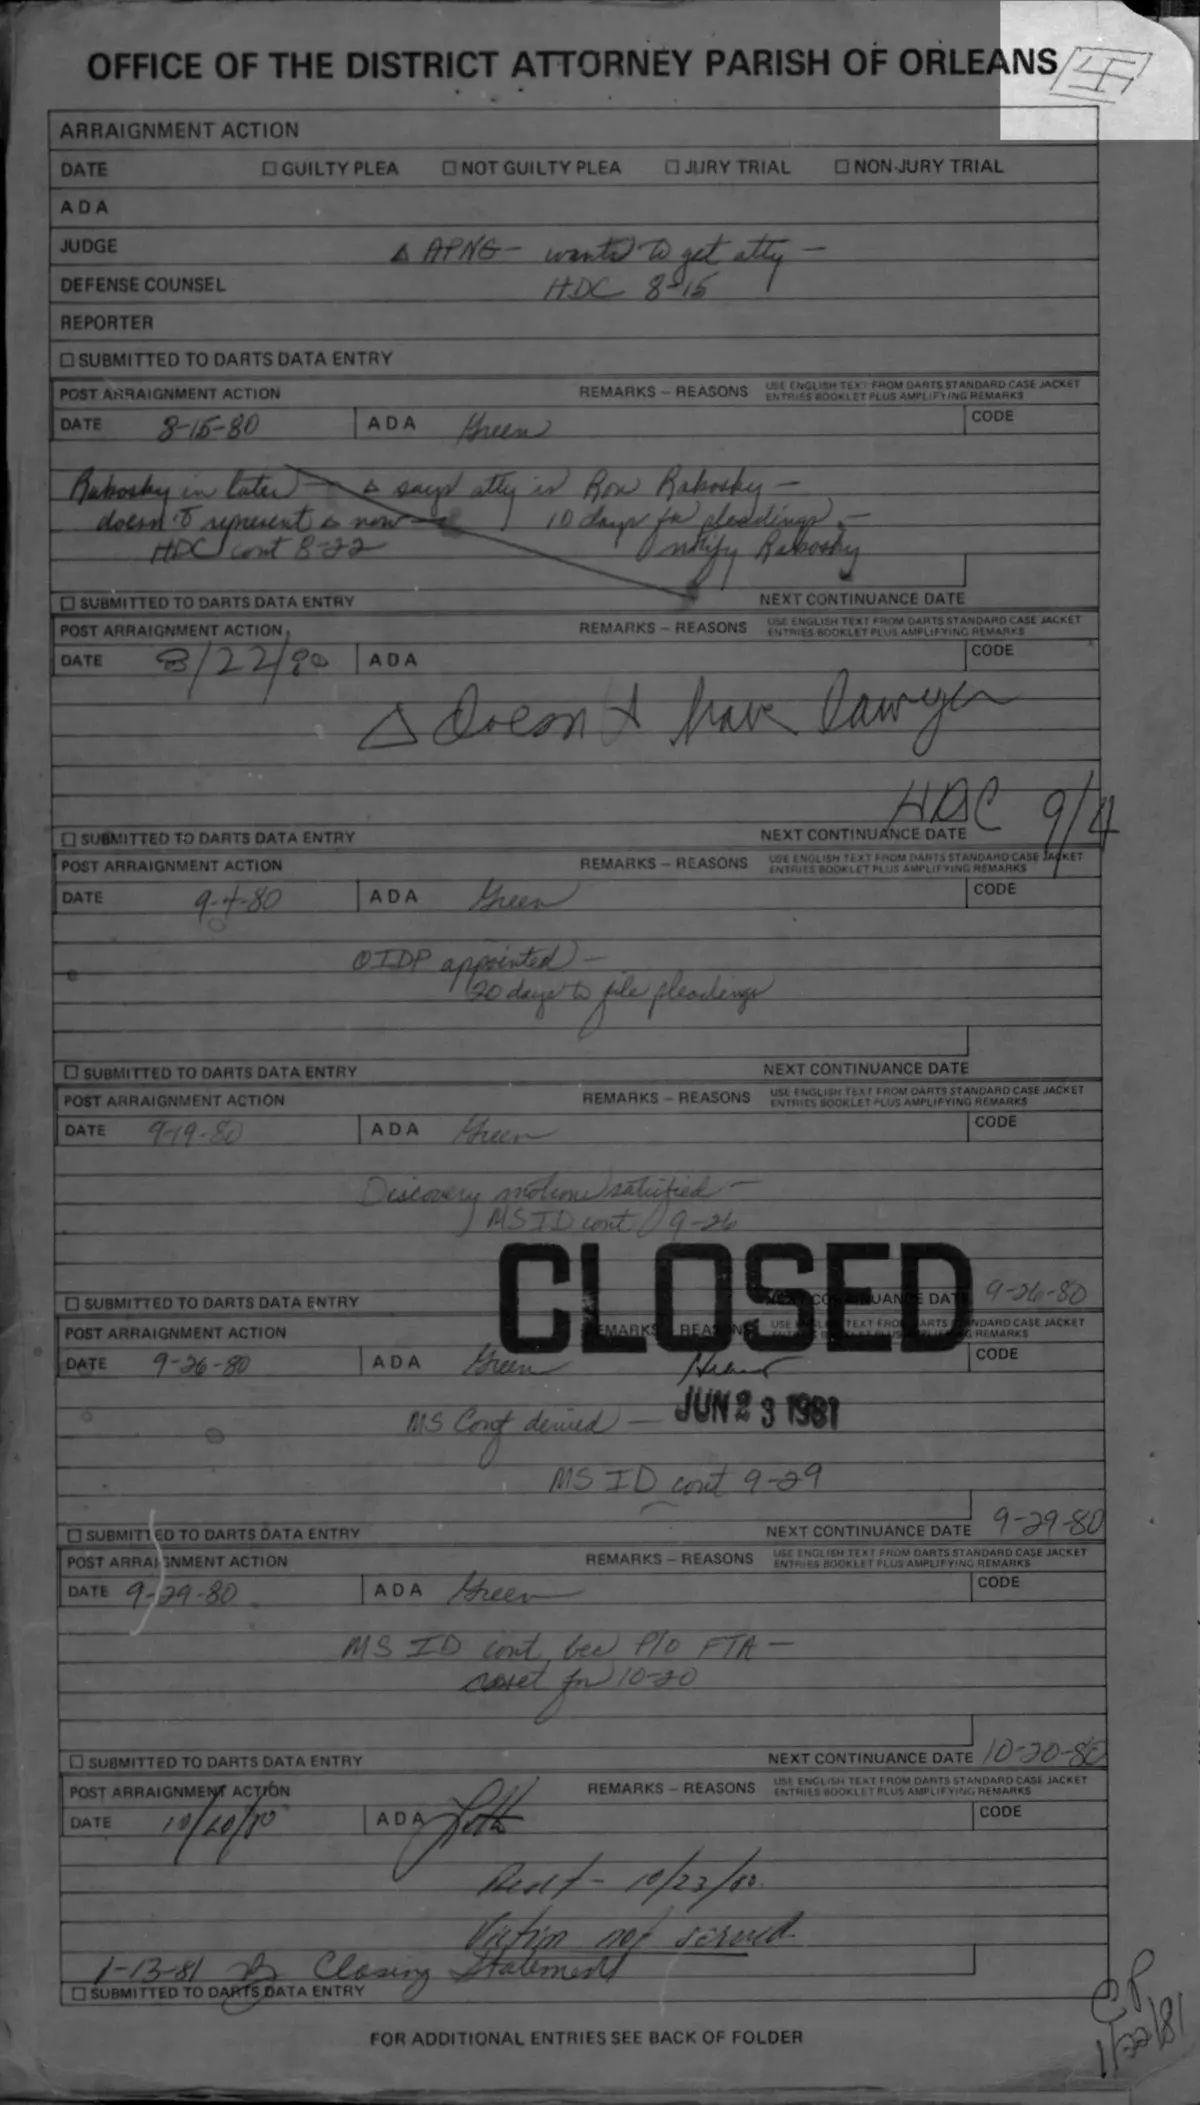 OFFICE OF THE DISTRICT ATTORNEY PARISH OF ORLEANS
ARRAIGNMENT ACTION
DATE ☐ GUILTY PLEA ☐ NOT GUILTY PLEA ☐ JURY TRIAL ☐ NON-JURY TRIAL
ADA
JUDGE Δ APNG - wants to get atty -
DEFENSE COUNSEL HDC 8-15
REPORTER
☐ SUBMITTED TO DARTS DATA ENTRY
POST ARRAIGNMENT ACTION REMARKS - REASONS USE ENGLISH TEXT FROM DARTS STANDARD CASE JACKET
ENTRIES BOOKLET PLUS AMPLIFYING REMARKS
DATE 8-15-80 ADA Green CODE
Rakosky in later - Δ says atty is Row Rakosky -
doesn't represent Δ now - 10 days for pleadings -
HDC cont 8-22 notify Rakosky
☐ SUBMITTED TO DARTS DATA ENTRY NEXT CONTINUANCE DATE
POST ARRAIGNMENT ACTION REMARKS - REASONS USE ENGLISH TEXT FROM DARTS STANDARD CASE JACKET
ENTRIES BOOKLET PLUS AMPLIFYING REMARKS
DATE 8/22/80 ADA CODE
Δ Doesn't have lawyer
HDC 9/4
☐ SUBMITTED TO DARTS DATA ENTRY NEXT CONTINUANCE DATE
POST ARRAIGNMENT ACTION REMARKS - REASONS USE ENGLISH TEXT FROM DARTS STANDARD CASE JACKET
ENTRIES BOOKLET PLUS AMPLIFYING REMARKS
DATE 9-4-80 ADA Green CODE
OIDP appointed -
20 days to file pleadings
☐ SUBMITTED TO DARTS DATA ENTRY NEXT CONTINUANCE DATE
POST ARRAIGNMENT ACTION REMARKS - REASONS USE ENGLISH TEXT FROM DARTS STANDARD CASE JACKET
ENTRIES BOOKLET PLUS AMPLIFYING REMARKS
DATE 9-19-80 ADA Green CODE
Discovery motions satisfied -
MS ID cont 9-26
CLOSED
☐ SUBMITTED TO DARTS DATA ENTRY NEXT CONTINUANCE DATE 9-26-80
POST ARRAIGNMENT ACTION REMARKS - REASONS USE ENGLISH TEXT FROM DARTS STANDARD CASE JACKET
ENTRIES BOOKLET PLUS AMPLIFYING REMARKS
DATE 9-26-80 ADA Green CODE
MS Conf denied - JUN 23 1981
MS ID cont 9-29
☐ SUBMITTED TO DARTS DATA ENTRY NEXT CONTINUANCE DATE 9-29-80
POST ARRAIGNMENT ACTION REMARKS - REASONS USE ENGLISH TEXT FROM DARTS STANDARD CASE JACKET
ENTRIES BOOKLET PLUS AMPLIFYING REMARKS
DATE 9-29-80 ADA Green CODE
MS ID cont bec P/O FTA -
reset for 10-20
☐ SUBMITTED TO DARTS DATA ENTRY NEXT CONTINUANCE DATE 10-20-80
POST ARRAIGNMENT ACTION REMARKS - REASONS USE ENGLISH TEXT FROM DARTS STANDARD CASE JACKET
ENTRIES BOOKLET PLUS AMPLIFYING REMARKS
DATE 10/20/80 ADA CODE
Reset - 10/23/80.
Victim not served
1-13-81 Closing Statement
☐ SUBMITTED TO DARTS DATA ENTRY
CP
1/22/81
FOR ADDITIONAL ENTRIES SEE BACK OF FOLDER